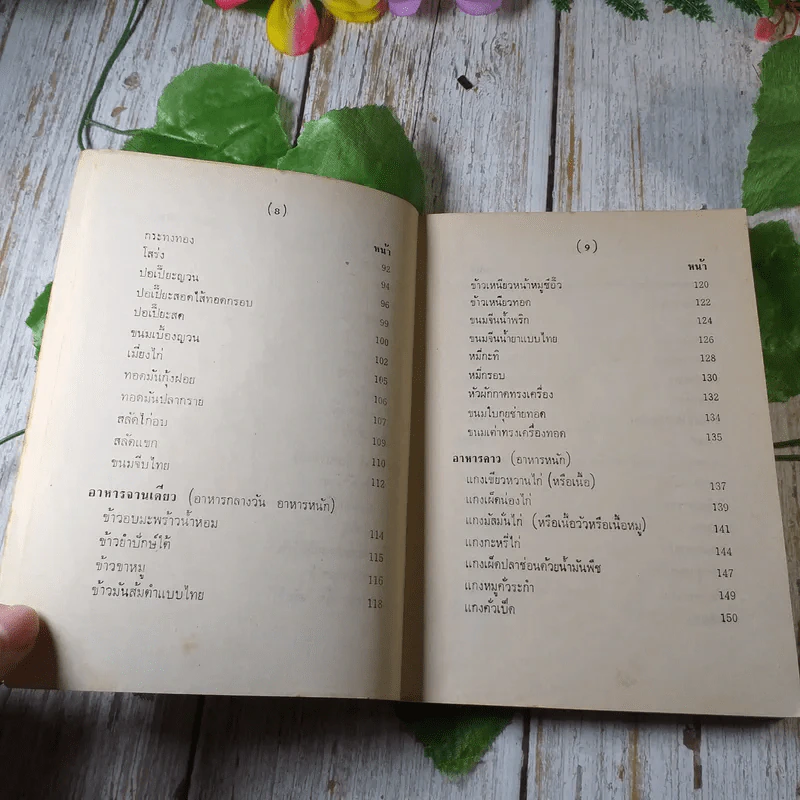 (8)
หน้า
กระทงทอง 92
โสร่ง 94
ปอเปี๊ยะญวน 96
ปอเปี๊ยะสอดไส้ทอดกรอบ 99
ปอเปี๊ยะสด 100
ขนมเบื้องญวน 102
เมี่ยงไก่ 105
ทอดมันกุ้งฝอย 106
ทอดมันปลากราย 107
สลัดไก่อบ 109
สลัดแขก 110
ขนมจีบไทย 112
อาหารจานเดียว (อาหารกลางวัน อาหารหนัก)
ข้าวอบมะพร้าวน้ำหอม 114
ข้าวยำปักษ์ใต้ 115
ข้าวขาหมู 116
ข้าวมันส้มตำแบบไทย 118
(9)
หน้า
ข้าวเหนียวหน้าหมูซีอิ๊ว 120
ข้าวเหนียวทอด 122
ขนมจีนน้ำพริก 124
ขนมจีนน้ำยาแบบไทย 126
หมี่กะทิ 128
หมี่กรอบ 130
หัวผักกาดทรงเครื่อง 132
ขนมใบกุยช่ายทอด 134
ขนมเต่าทรงเครื่องทอด 135
อาหารคาว (อาหารหนัก)
แกงเขียวหวานไก่ (หรือเนื้อ) 137
แกงเผ็ดน่องไก่ 139
แกงมัสมั่นไก่ (หรือเนื้อวัวหรือเนื้อหมู) 141
แกงกะหรี่ไก่ 144
แกงเผ็ดปลาช่อนด้วยน้ำมันพืช 147
แกงหมูคั่วระกำ 149
แกงคั่วเป็ด 150